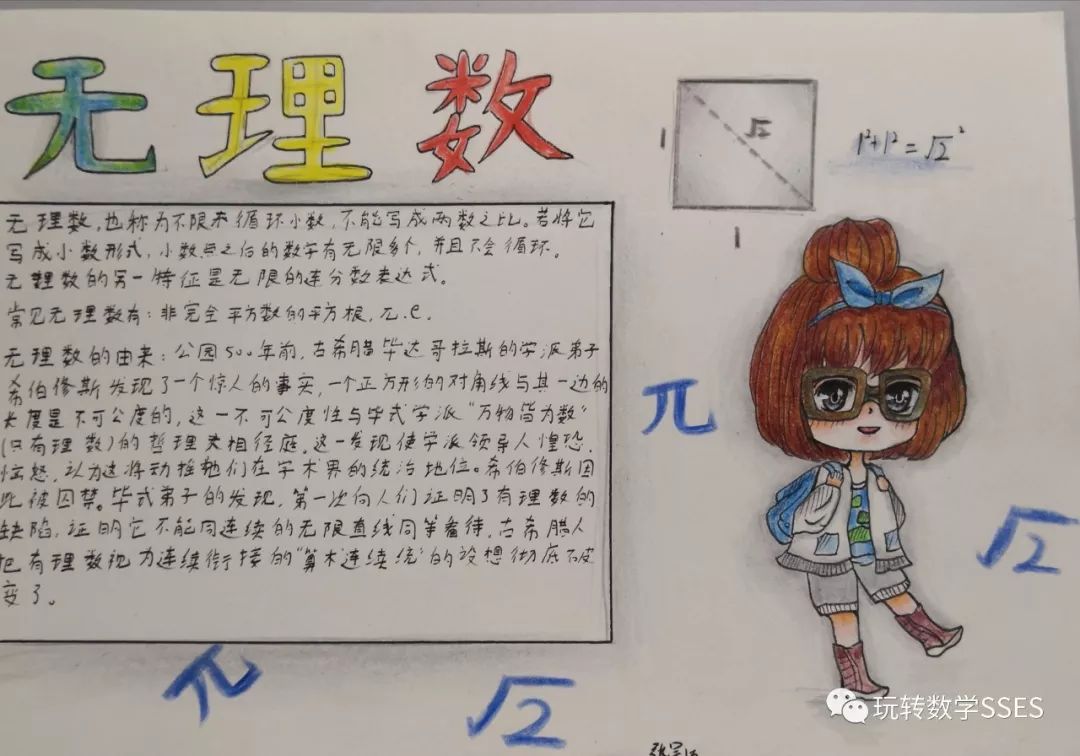 无理数
√2
1
1
1²+1²=√2²
无理数,也称为不限不循环小数,不能写成两数之比。若将它
写成小数形式,小数点之后的数字有无限多个,并且不会循环。
无理数的另一特征是无限的连分数表达式。
常见无理数有:非完全平方数的平方根,π.e.
无理数的由来:公园500年前,古希腊毕达哥拉斯的学派弟子
希伯修斯发现了一个惊人的事实,一个正方形的对角线与其一边的
长度是不可公度的,这一不可公度性与毕式学派“万物皆为数”
(只有理数)的哲理大相径庭。这一发现使学派领导人惶恐,
恼怒,认为这将动摇他们在学术界的统治地位。希伯修斯因
此被囚禁。毕式弟子的发现,第一次向人们证明了有理数的
缺陷,证明它不能同连续的无限直线同等看待,古希腊人
把有理数视为连续衔接的“算术连续统”的设想彻底破
变了。
π
√2
π
√2
玩转数学SSES